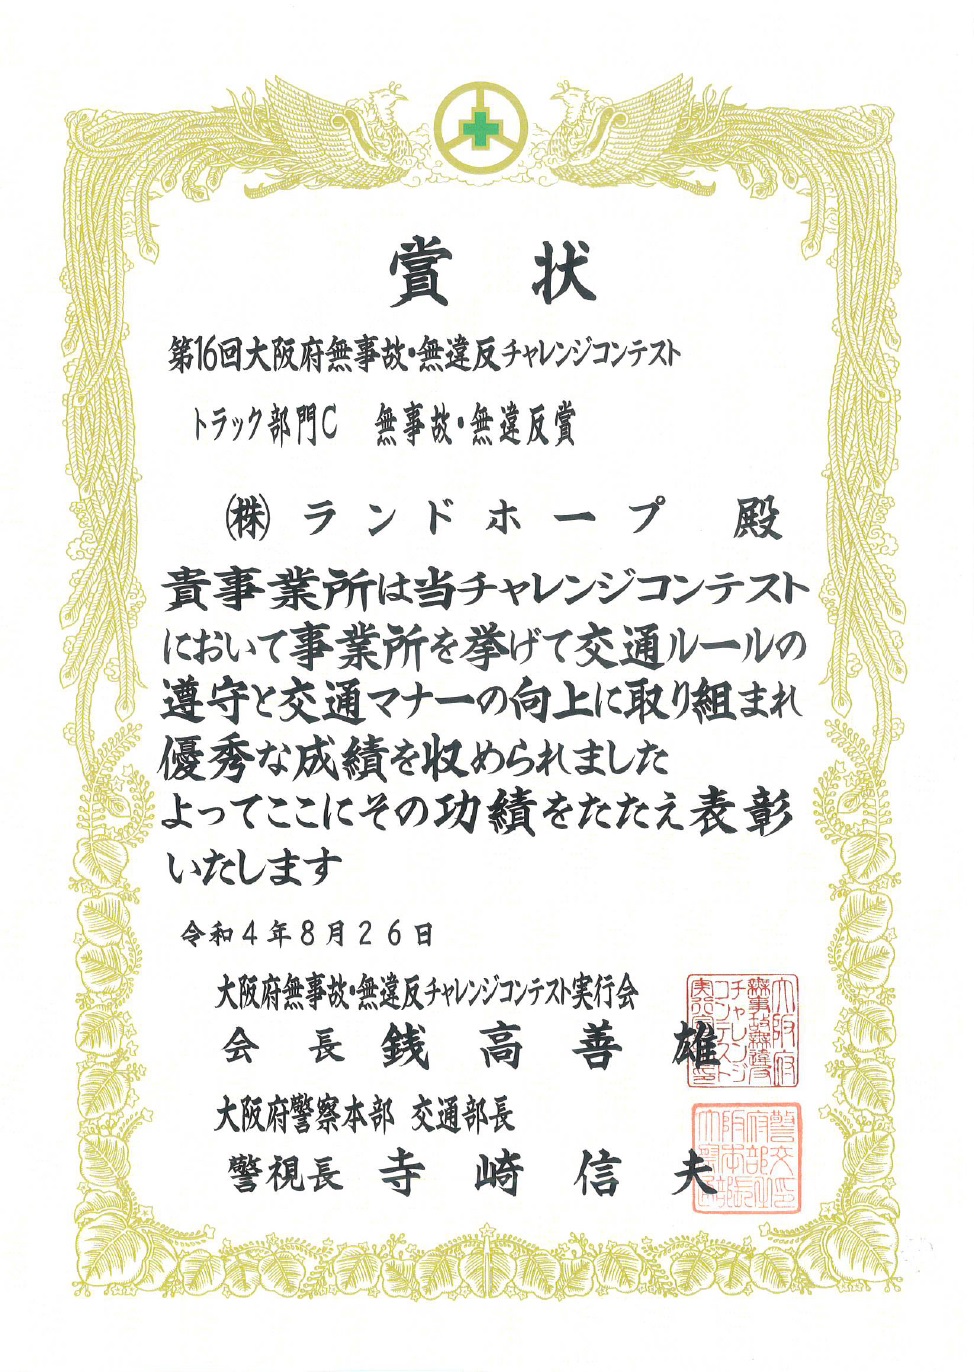 賞状
第16回大阪府無事故・無違反チャレンジコンテスト
トラック部門C 無事故・無違反賞
㈱ランドホープ 殿
貴事業所は当チャレンジコンテスト
において事業所を挙げて交通ルールの
遵守と交通マナーの向上に取り組まれ
優秀な成績を収められました
よってここにその功績をたたえ表彰
いたします
令和4年8月26日
大阪府無事故・無違反チャレンジコンテスト実行会
会長 銭高善雄
大阪府警察本部 交通部長
警視長 寺崎信夫